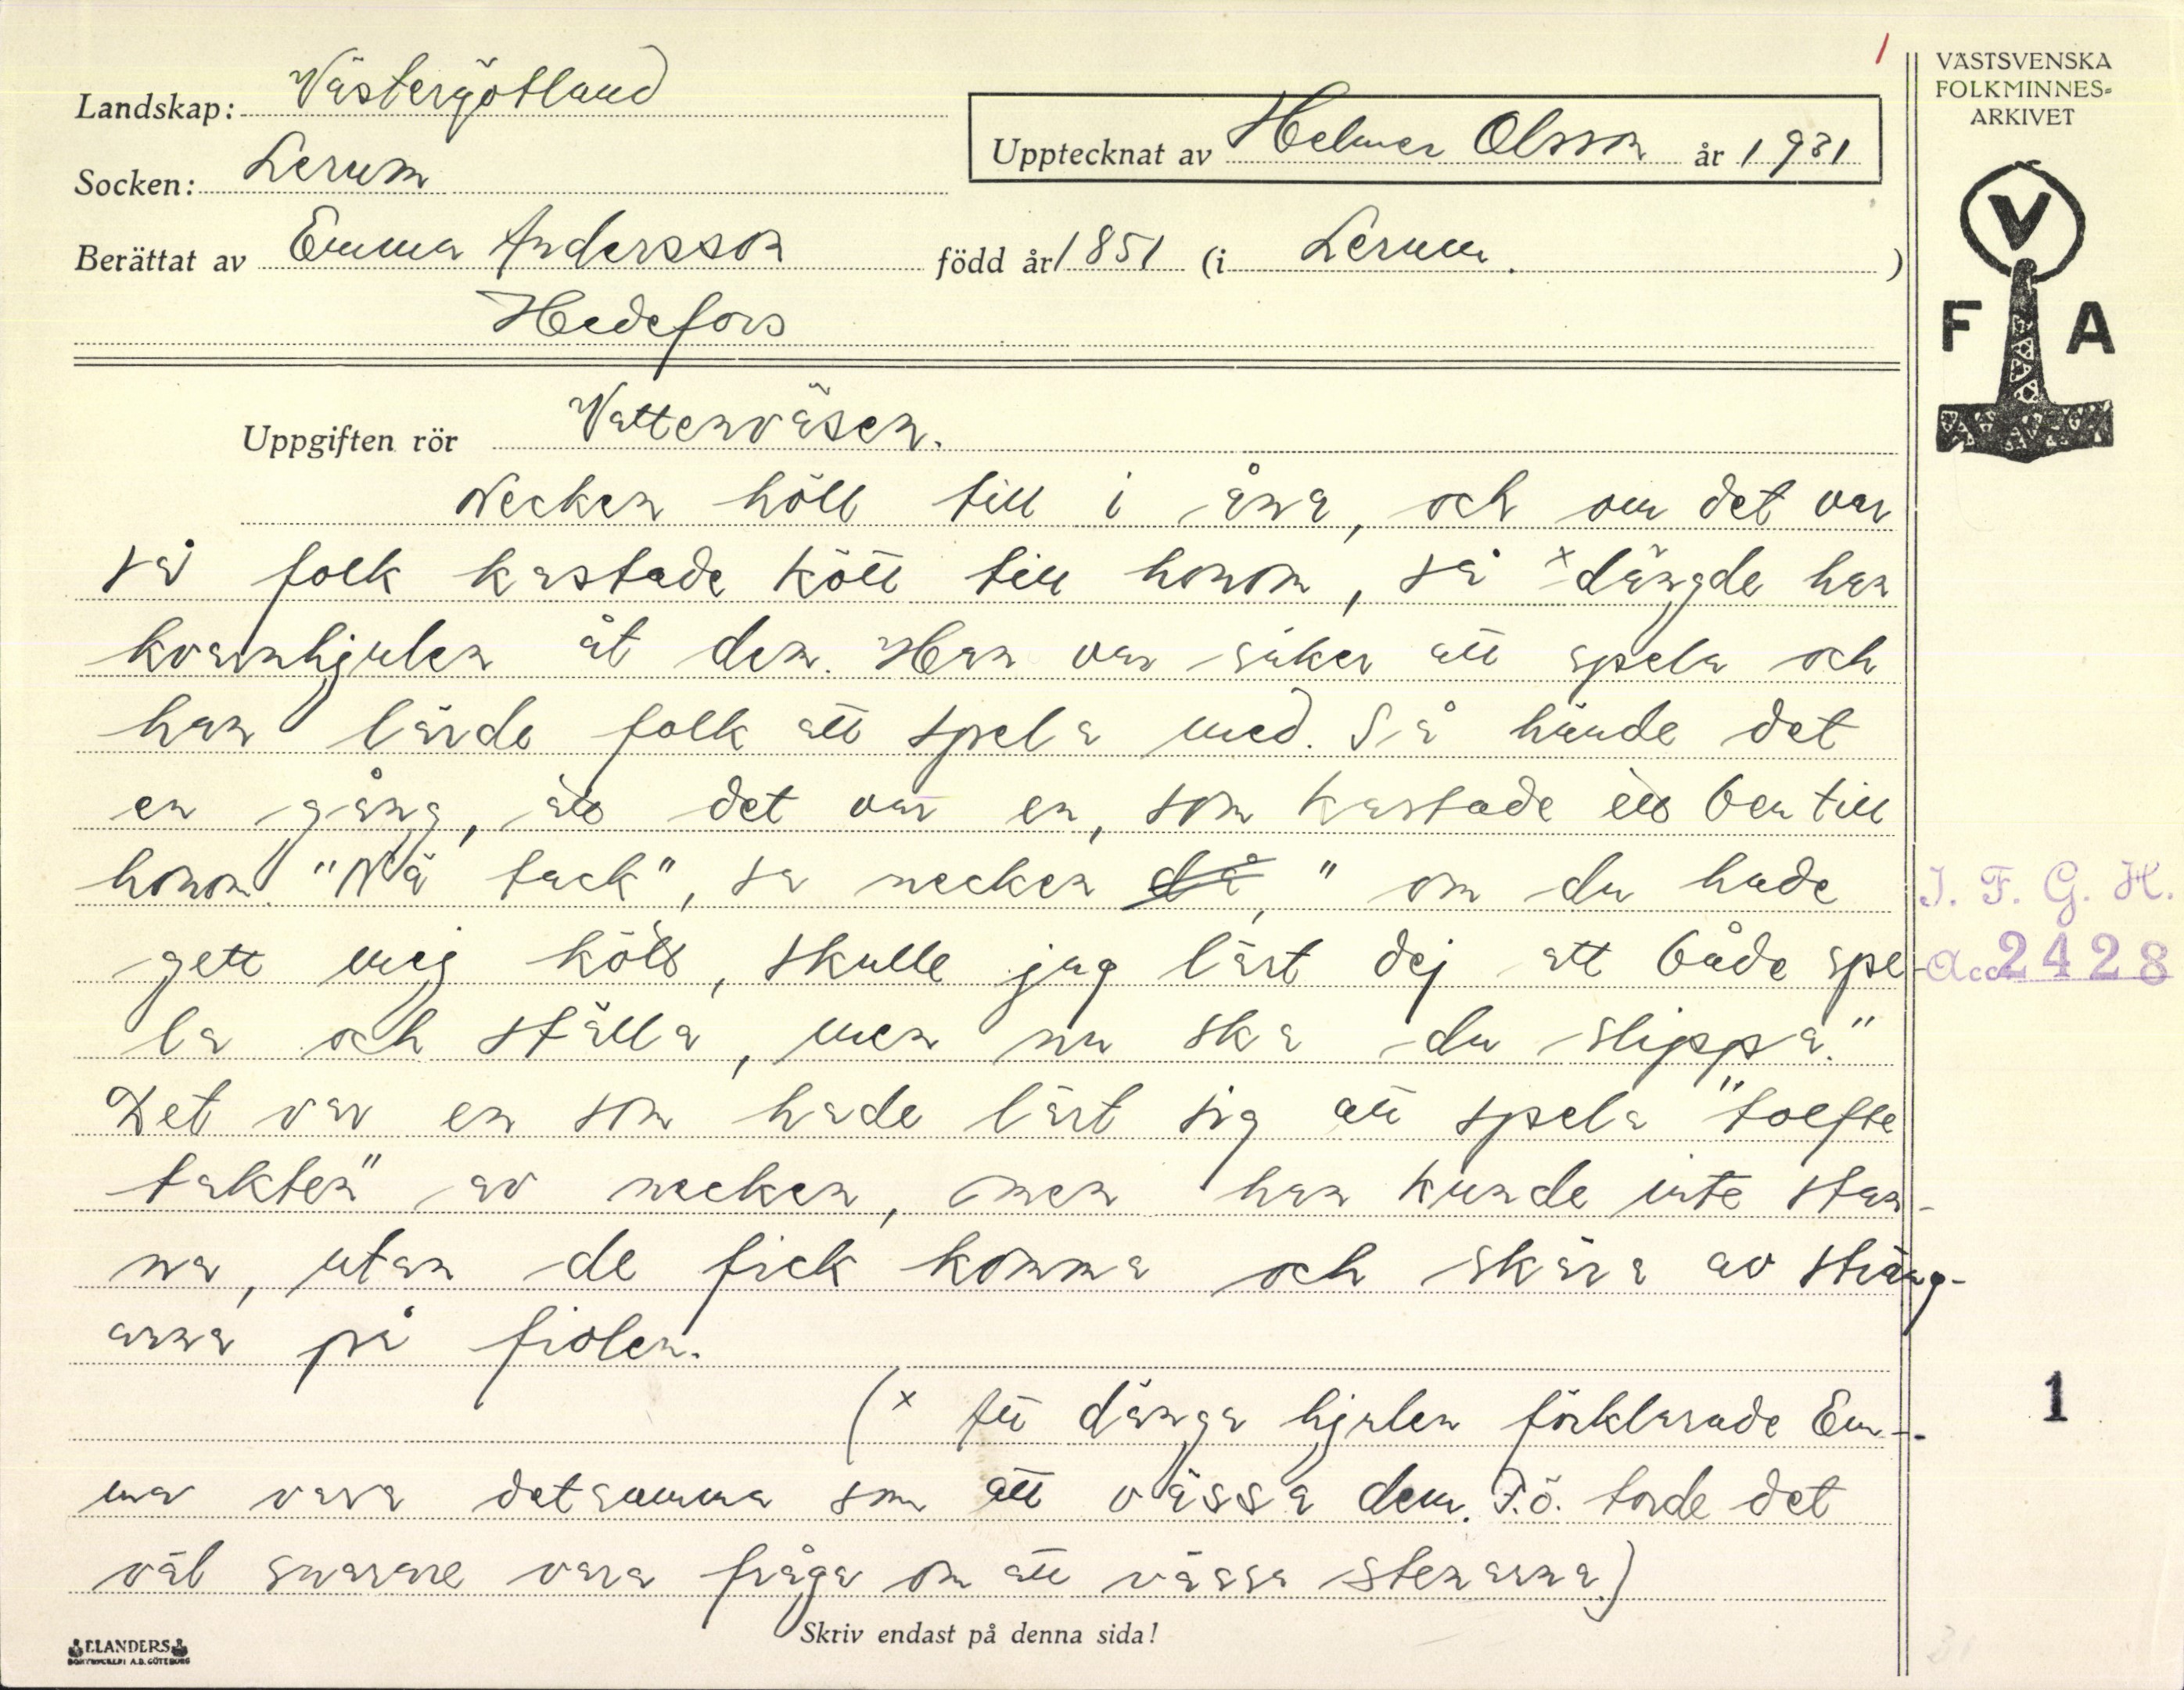 1
VÄSTSVENSKA
FOLKMINNES-
ARKIVET
V
F A
Landskap: Västergötland
Upptecknat av Helmer Olsson år 1931
Socken: Lerum
Berättat av Emma Andersson född år 1851 (i Lerum.)
Hedefors
Uppgiften rör Vattenväsen.
Necken höll till i åna, och om det var
så folk kastade kött till honom, så x dängde han
kvarnhjulen åt dem. Han var säker att spela och
han lärde folk att spela med. Så hände det
en gång, att det var en, som kastade ett ben till
honom. "Nä tack", sa necken då, "om du hade
gett mig kött, skulle jag lärt dej att både spe-
la och ställa, men nu ska du slippa."
Det var en som hade lärt sig att spela "tolfte
takten" av necken, men han kunde inte stan-
na, utan de fick komma och skära av sträng-
arna på fiolen.
(x Att dänga hjulen förklarade Em-
ma vara detsamma som att vässa dem. F.ö. torde det
väl snarare vara fråga om att vässa stenarna.)
Skriv endast på denna sida!
ELANDERS
BOKTRYCKERI A.B. GÖTEBORG
I. F. G. H.
Acc 2428
1